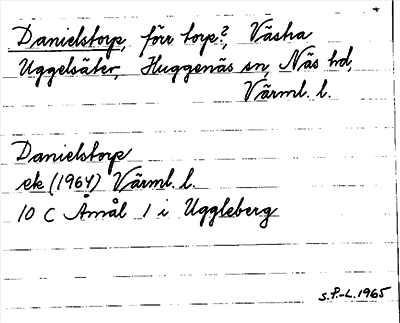 Danielstorp, förr torp?, Västra
Uggelsäter, Huggenäs sn, Näs hd,
Värml. l.
Danielstorp
ek (1964) Värml. l.
10 C Åmål 1 i Uggleberg
S.P.-L. 1965